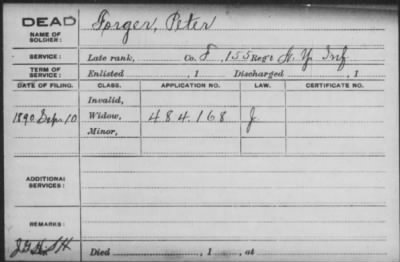 DEAD
NAME OF SOLDIER: Forger, Peter
SERVICE: Late rank, Co. F, 155 Reg't N.Y. Inf
TERM OF SERVICE: Enlisted , 1 Discharged , 1
DATE OF FILING. CLASS. APPLICATION NO. LAW. CERTIFICATE NO.
Invalid,
1890 Sept 10 Widow, 484.168 J
Minor,
ADDITIONAL SERVICES:
REMARKS:
Died , 1 , at